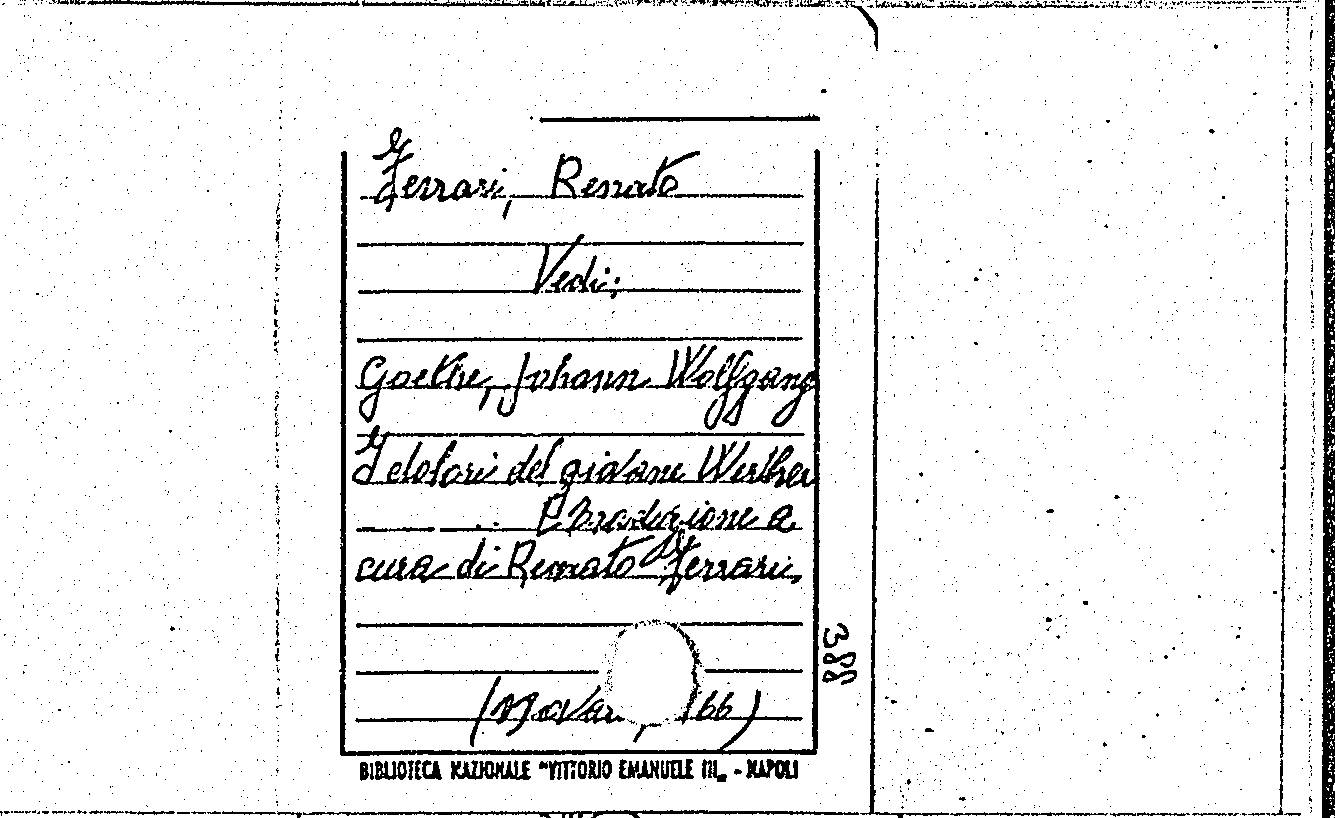 Ferrari, Renato
Vedi:
Goethe, Johann Wolfgang
I dolori del giovane Werther
Traduzione a
cura di Renato Ferrari.
166)
388
BIBLIOTECA NAZIONALE "VITTORIO EMANUELE III„ - NAPOLI